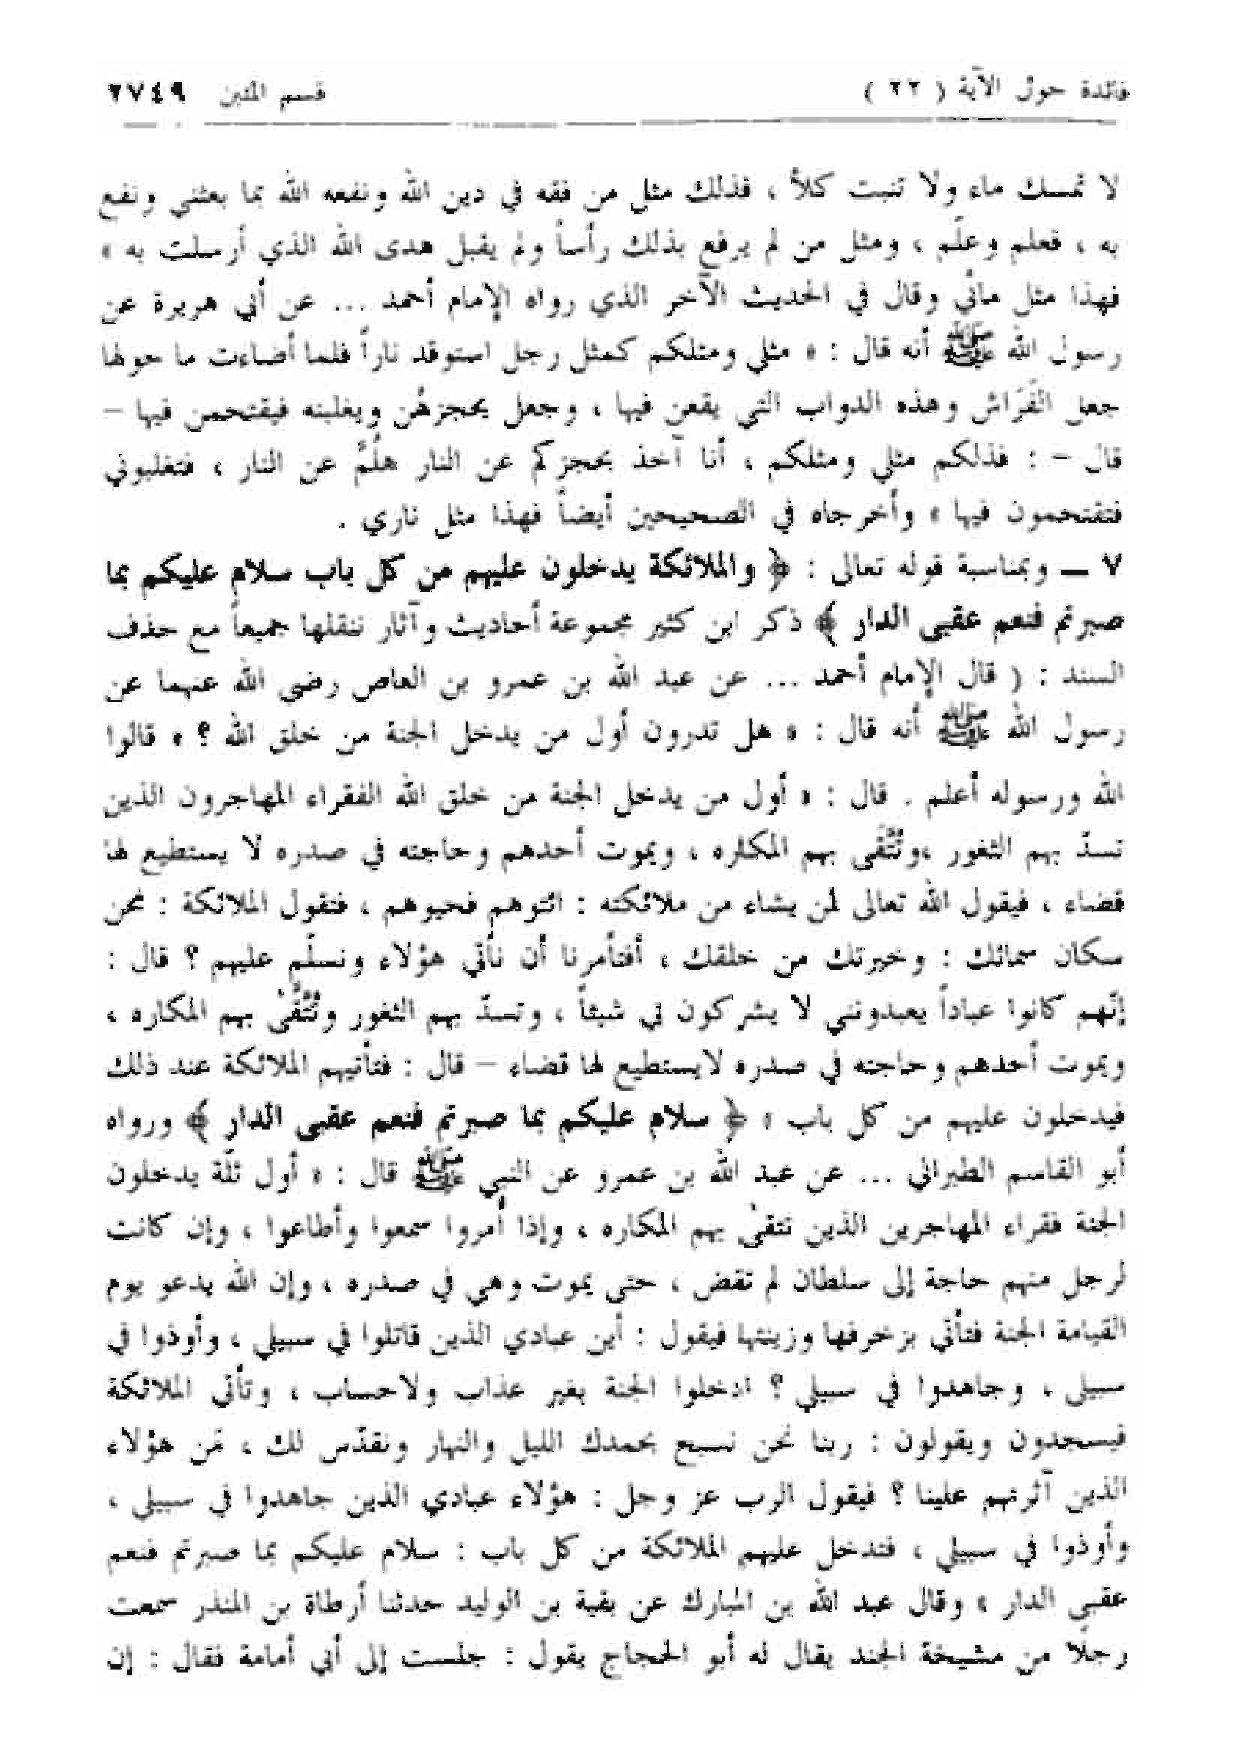 فائدة حول الآية ( ٢٢ ) قسم المئين ٢٧٤٩
لا تمسك ماء ولا تنبت كلأ ، فذلك مثل من فقه في دين الله ونفعه الله بما بعثني ونفع
به ، فعلم وعلّم ، ومثل من لم يرفع بذلك رأساً ولم يقبل هدى الله الذي أرسلت به »
فهذا مثل مائي وقال في الحديث الآخر الذي رواه الإمام أحمد ... عن أبي هريرة عن
رسول الله ﷺ أنه قال : « مثلي ومثلكم كمثل رجل استوقد ناراً فلما أضاءت ما حولها
جعل الفَرَاش وهذه الدواب التي يقعن فيها ، وجعل يحجزهُن ويغلبنه فيقتحمن فيها –
قال – : فذلكم مثلي ومثلكم ، أنا آخذ بحجزكم عن النار هلُمَّ عن النار ، فتغلبوني
فتقتحمون فيها » وأخرجاه في الصحيحين أيضاً فهذا مثل ناري .
٧ ــ وبمناسبة قوله تعالى : ﴿ والملائكة يدخلون عليهم من كل باب سلام عليكم بما
صبرتم فنعم عقبى الدار ﴾ ذكر ابن كثير مجموعة أحاديث وآثار ننقلها جميعاً مع حذف
السند : ( قال الإمام أحمد ... عن عبد الله بن عمرو بن العاص رضي الله عنهما عن
رسول الله ﷺ أنه قال : « هل تدرون أول من يدخل الجنة من خلق الله ؟ » قالوا
الله ورسوله أعلم . قال : « أول من يدخل الجنة من خلق الله الفقراء المهاجرون الذين
تسدّ بهم الثغور ،وتُتَّقَى بهم المكاره ، ويموت أحدهم وحاجته في صدره لا يستطيع لها
قضاء ، فيقول الله تعالى لمن يشاء من ملائكته : ائتوهم فحيوهم ، فتقول الملائكة : نحن
سكان سمائك : وخيرتك من خلقك ، أفتأمرنا أن نأتي هؤلاء ونسلّم عليهم ؟ قال :
إنّهم كانوا عباداً يعبدونني لا يشركون بي شيئاً ، وتسدّ بهم الثغور وتُتَّقَىْ بهم المكاره ،
ويموت أحدهم وحاجته في صدره لايستطيع لها قضاء – قال : فتأتيهم الملائكة عند ذلك
فيدخلون عليهم من كل باب » ﴿ سلام عليكم بما صبرتم فنعم عقبى الدار ﴾ ورواه
أبو القاسم الطبراني ... عن عبد الله بن عمرو عن النبي ﷺ قال : « أول ثلّة يدخلون
الجنة فقراء المهاجرين الذين تتقىْ بهم المكاره ، وإذا أُمروا سمعوا وأطاعوا ، وإن كانت
لرجل منهم حاجة إلى سلطان لم تقض ، حتى يموت وهي في صدره ، وإن الله يدعو يوم
القيامة الجنة فتأتي بزخرفها وزينتها فيقول : أين عبادي الذين قاتلوا في سبيلي ، وأوذوا في
سبيلي ، وجاهدوا في سبيلي ؟ ادخلوا الجنة بغير عذاب ولاحساب ، وتأتي الملائكة
فيسجدون ويقولون : ربنا نحن نسبح بحمدك الليل والنهار ونقدّس لك ، مَن هؤلاء
الذين آثرتهم علينا ؟ فيقول الرب عز وجل : هؤلاء عبادي الذين جاهدوا في سبيلي ،
وأوذوا في سبيلي ، فتدخل عليهم الملائكة من كل باب : سلام عليكم بما صبرتم فنعم
عقبى الدار » وقال عبد الله بن المبارك عن بقية بن الوليد حدثنا أرطاة بن المنذر سمعت
رجلاً من مشيخة الجند يقال له أبو الحجاج يقول : جلست إلى أبي أمامة فقال : إن